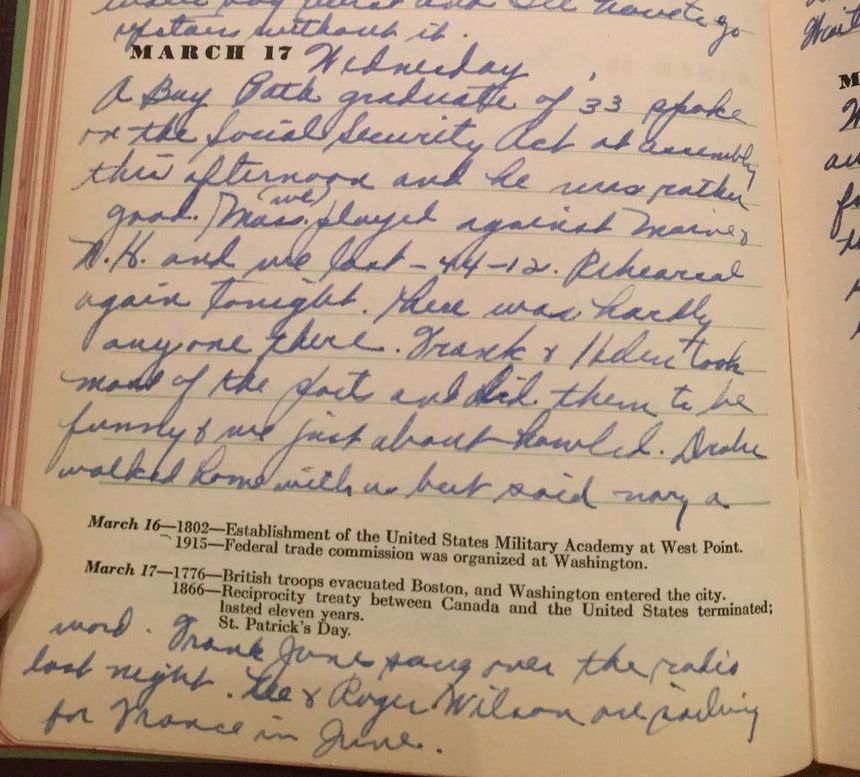 upstairs without it.
MARCH 17 Wednesday
A Bay Path graduate of '33 spoke
on the Social Security Act at assembly
this afternoon and he was rather
good. Mass. (we) played against Maine &
N.H. and we lost - 44-12. Rehearsal
again tonight. There was hardly
anyone there. Frank & Helen took
most of the parts and did them to be
funny & we just about howled. Drake
walked home with us but said nary a
March 16—1802—Establishment of the United States Military Academy at West Point.
1915—Federal trade commission was organized at Washington.
March 17—1776—British troops evacuated Boston, and Washington entered the city.
1866—Reciprocity treaty between Canada and the United States terminated;
lasted eleven years.
St. Patrick's Day.
word. Frank Jones sang over the radio
last night. Lee & Roger Wilson are sailing
for France in June.